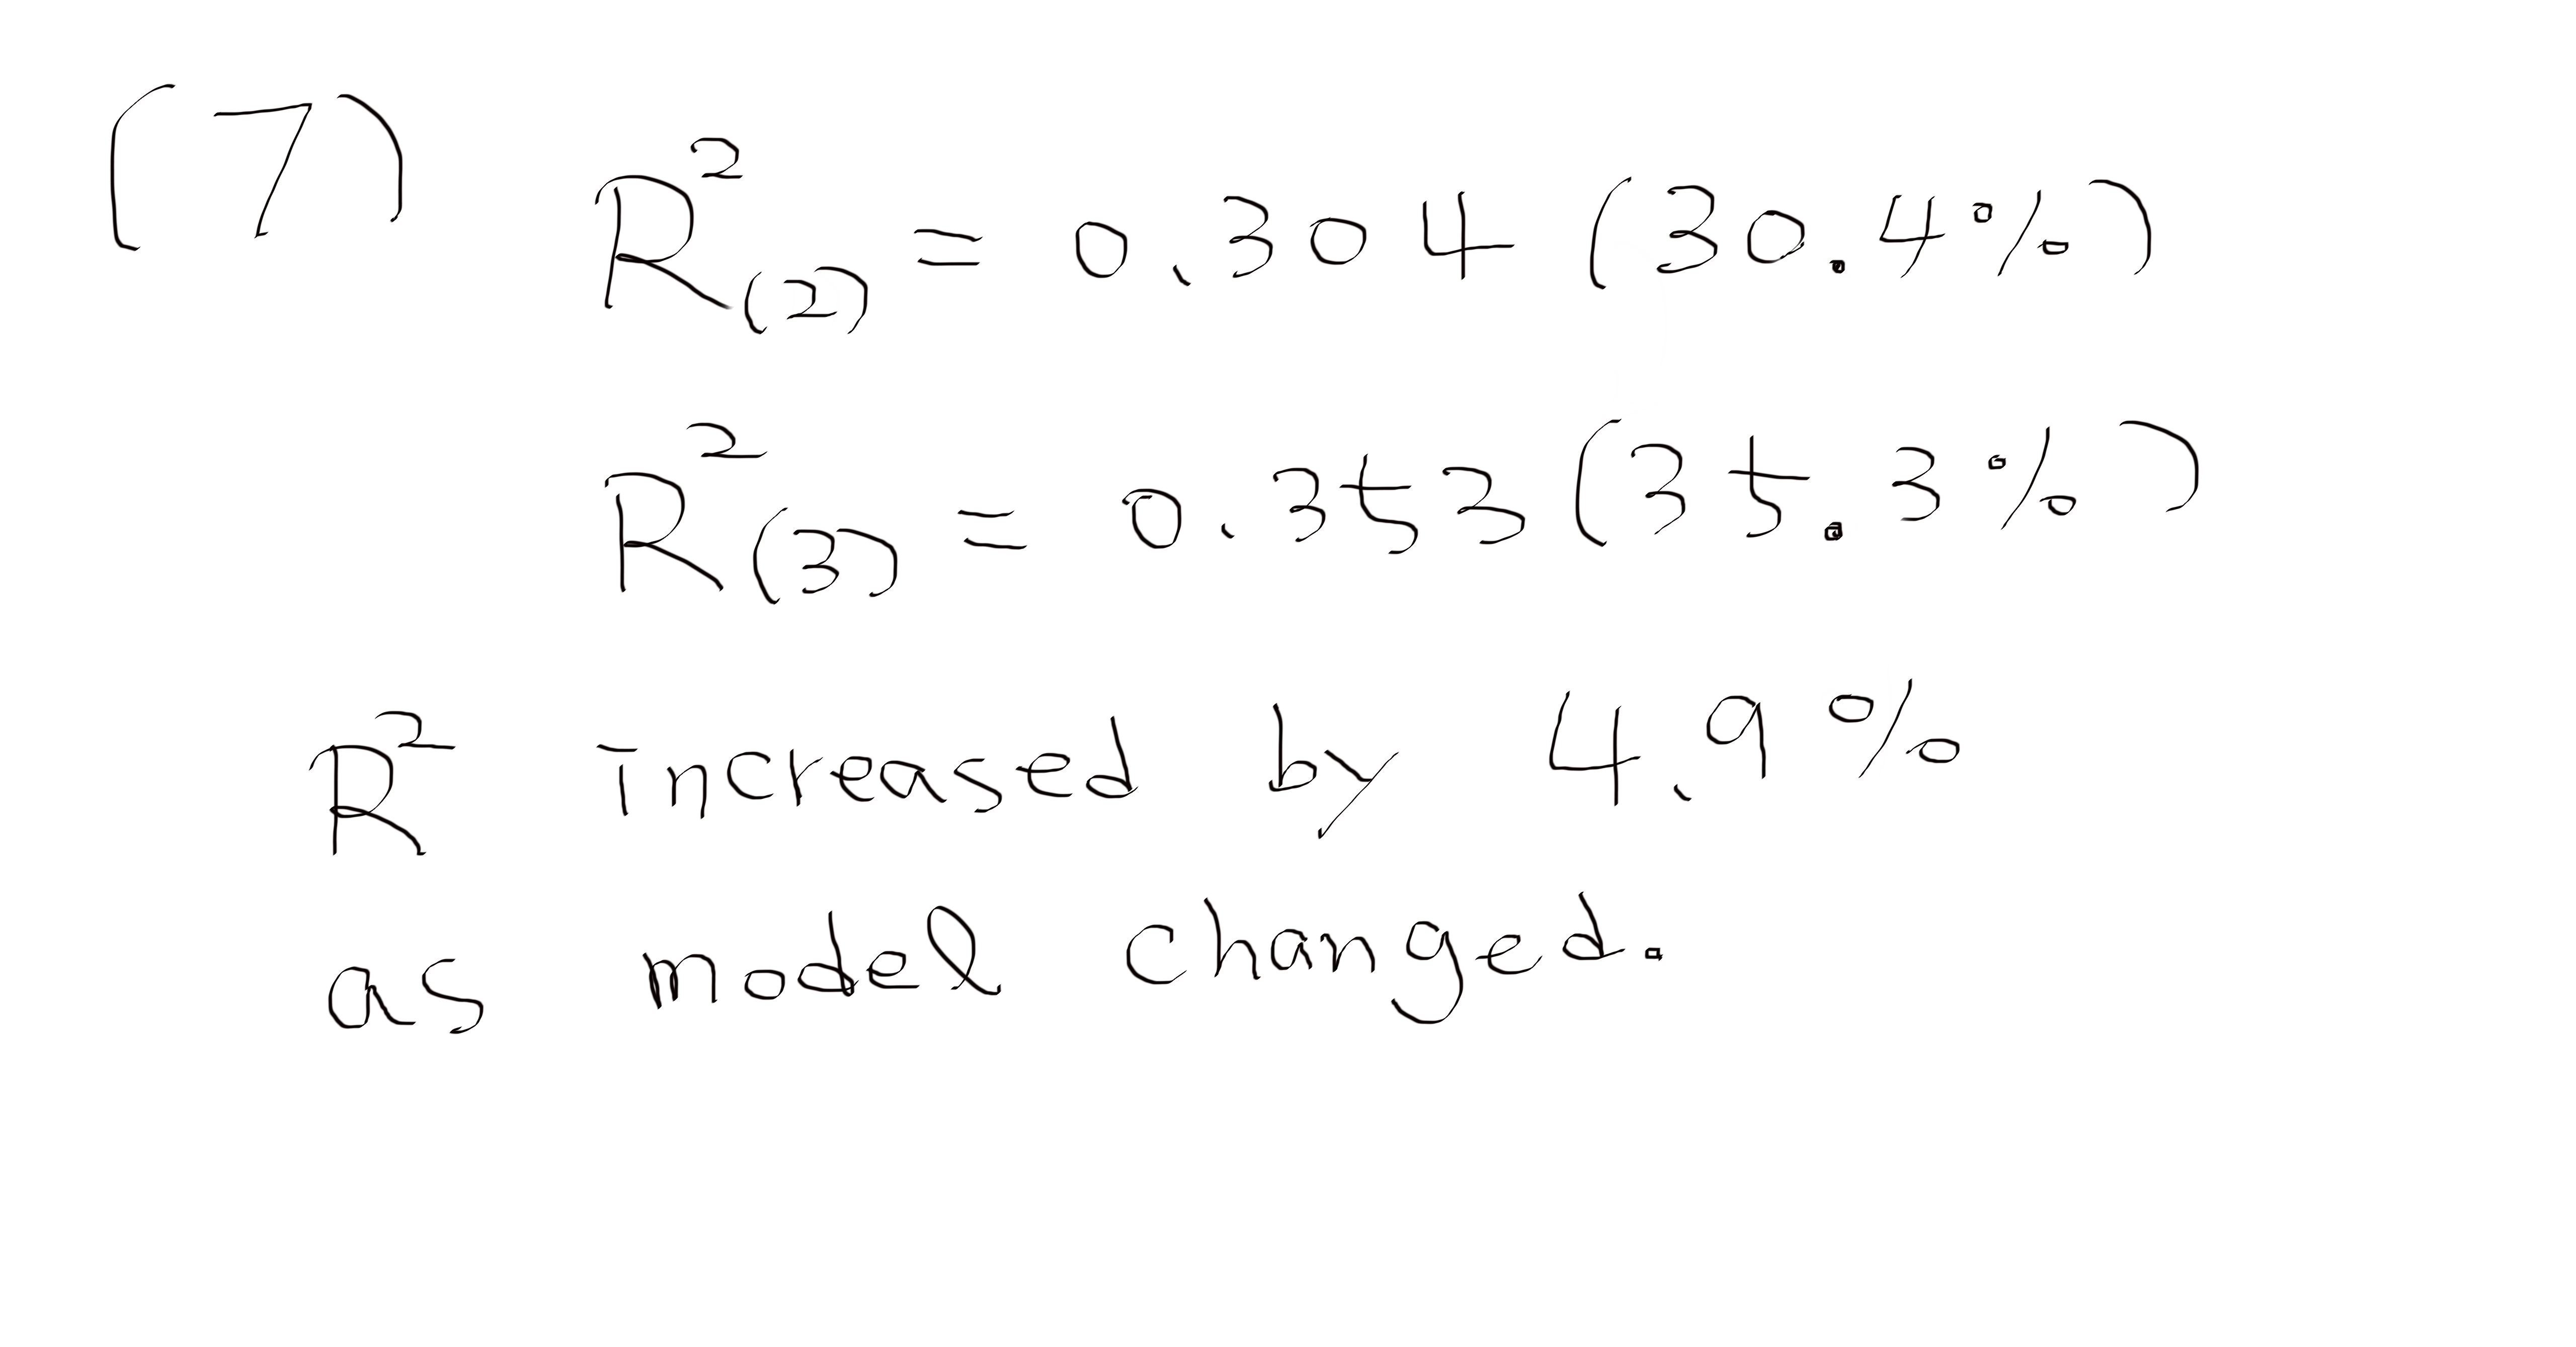 (7) R²(2) = 0.304 (30.4%)
R²(3) = 0.353 (35.3%)
R² increased by 4.9%
as model changed.